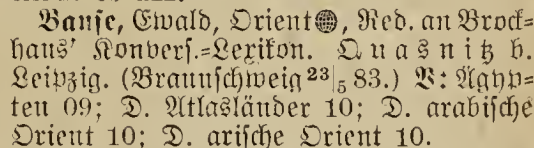 Banse, Ewald, Orient🌐, Red. an Brock-
haus' Konvers.=Lexikon. Quasnitz b.
Leipzig. (Braunschweig ²³|₅ 83.) V: Ägyp-
ten 09; D. Atlasländer 10; D. arabische
Orient 10; D. arische Orient 10.